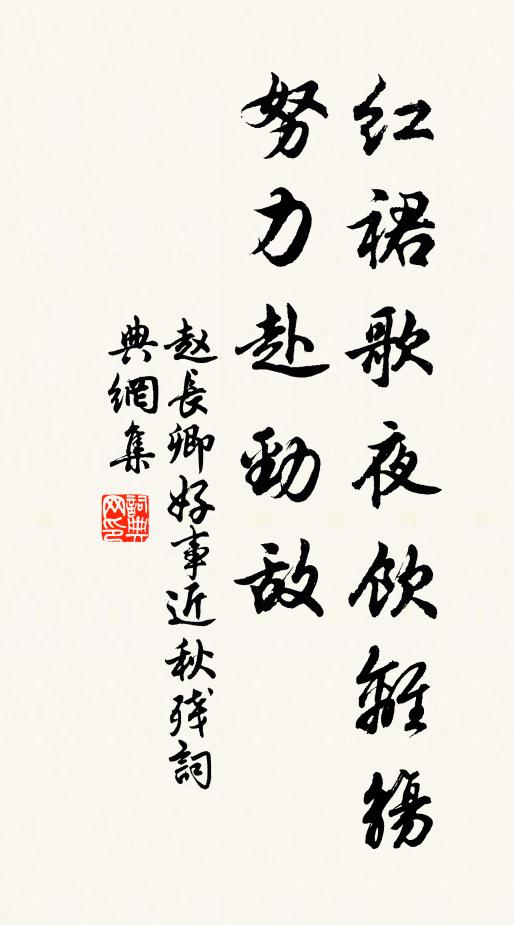 红裙歌夜饮離觴
努力赴勁敌
赵長卿好事近秋残詞
典網集
詞典网印